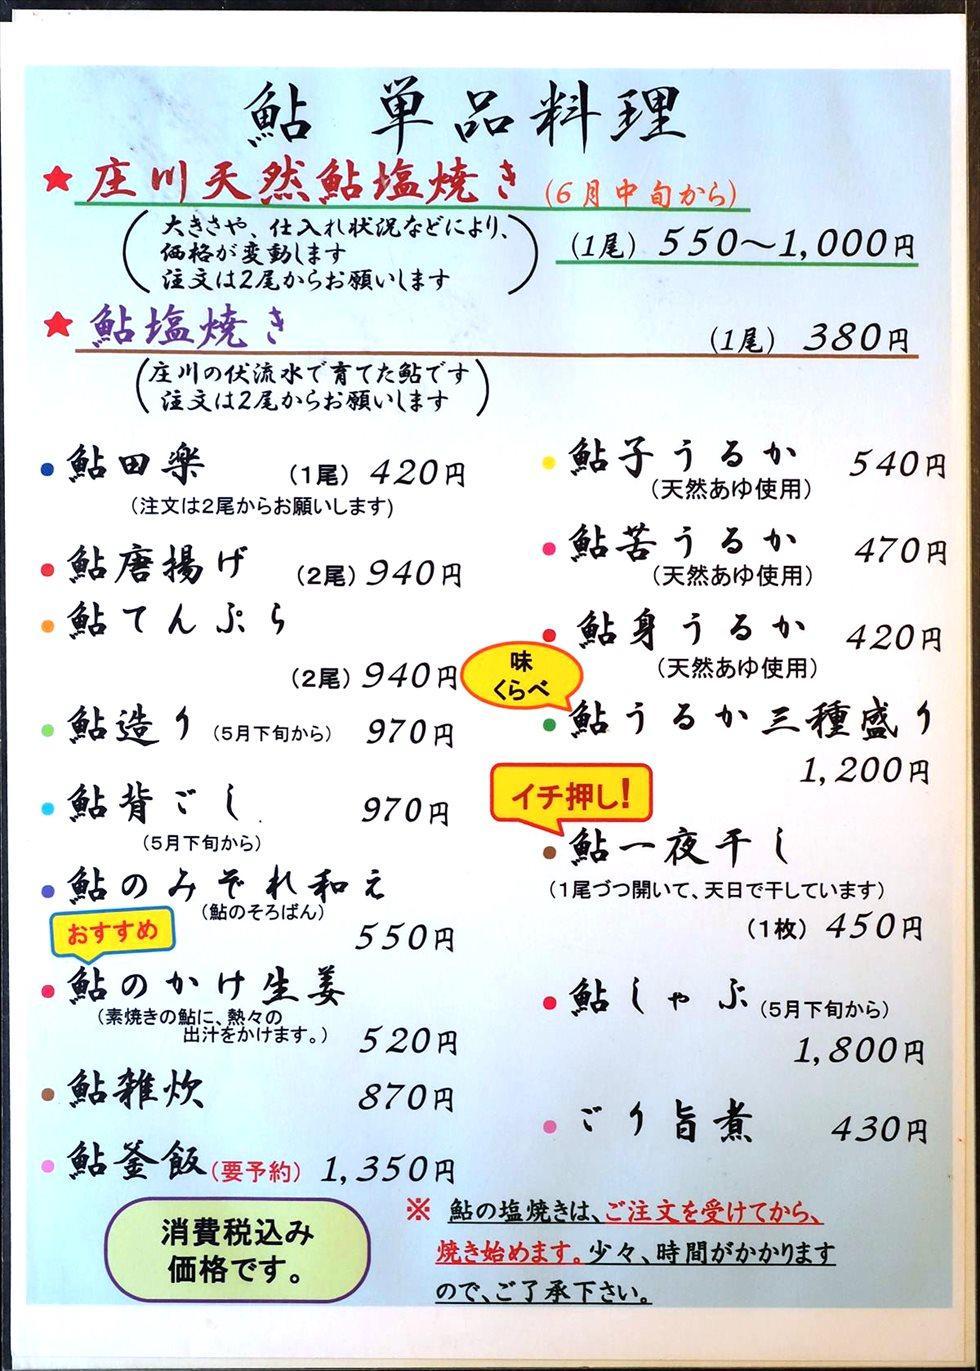 鮎 単品料理
★ 庄川天然鮎塩焼き (6月中旬から)
(大きさや、仕入れ状況などにより、
価格が変動します
注文は2尾からお願いします)
(1尾) 550～1,000円
★ 鮎塩焼き (1尾) 380円
(庄川の伏流水で育てた鮎です
注文は2尾からお願いします)
・鮎田楽 (1尾) 420円
(注文は2尾からお願いします)
・鮎唐揚げ (2尾) 940円
・鮎てんぷら
(2尾) 940円
・鮎造り (5月下旬から) 970円
・鮎背ごし 970円
(5月下旬から)
・鮎のみぞれ和え
(鮎のそろばん)
550円
おすすめ
・鮎のかけ生姜
(素焼きの鮎に、熱々の
出汁をかけます。)
520円
・鮎雑炊 870円
・鮎釜飯 (要予約) 1,350円
・鮎子うるか 540円
(天然あゆ使用)
・鮎苦うるか 470円
(天然あゆ使用)
・鮎身うるか 420円
(天然あゆ使用)
味
くらべ
・鮎うるか三種盛り
1,200円
イチ押し!
・鮎一夜干し
(1尾づつ開いて、天日で干しています)
(1枚) 450円
・鮎しゃぶ (5月下旬から)
1,800円
・ごり旨煮 430円
消費税込み
価格です。
※ 鮎の塩焼きは、ご注文を受けてから、
焼き始めます。少々、時間がかかります
ので、ご了承下さい。